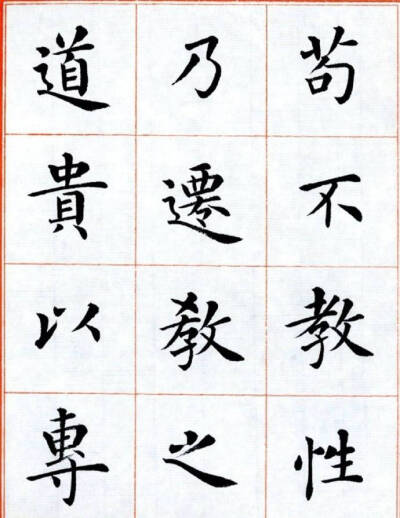 苟不教性
乃遷教之
道貴以專